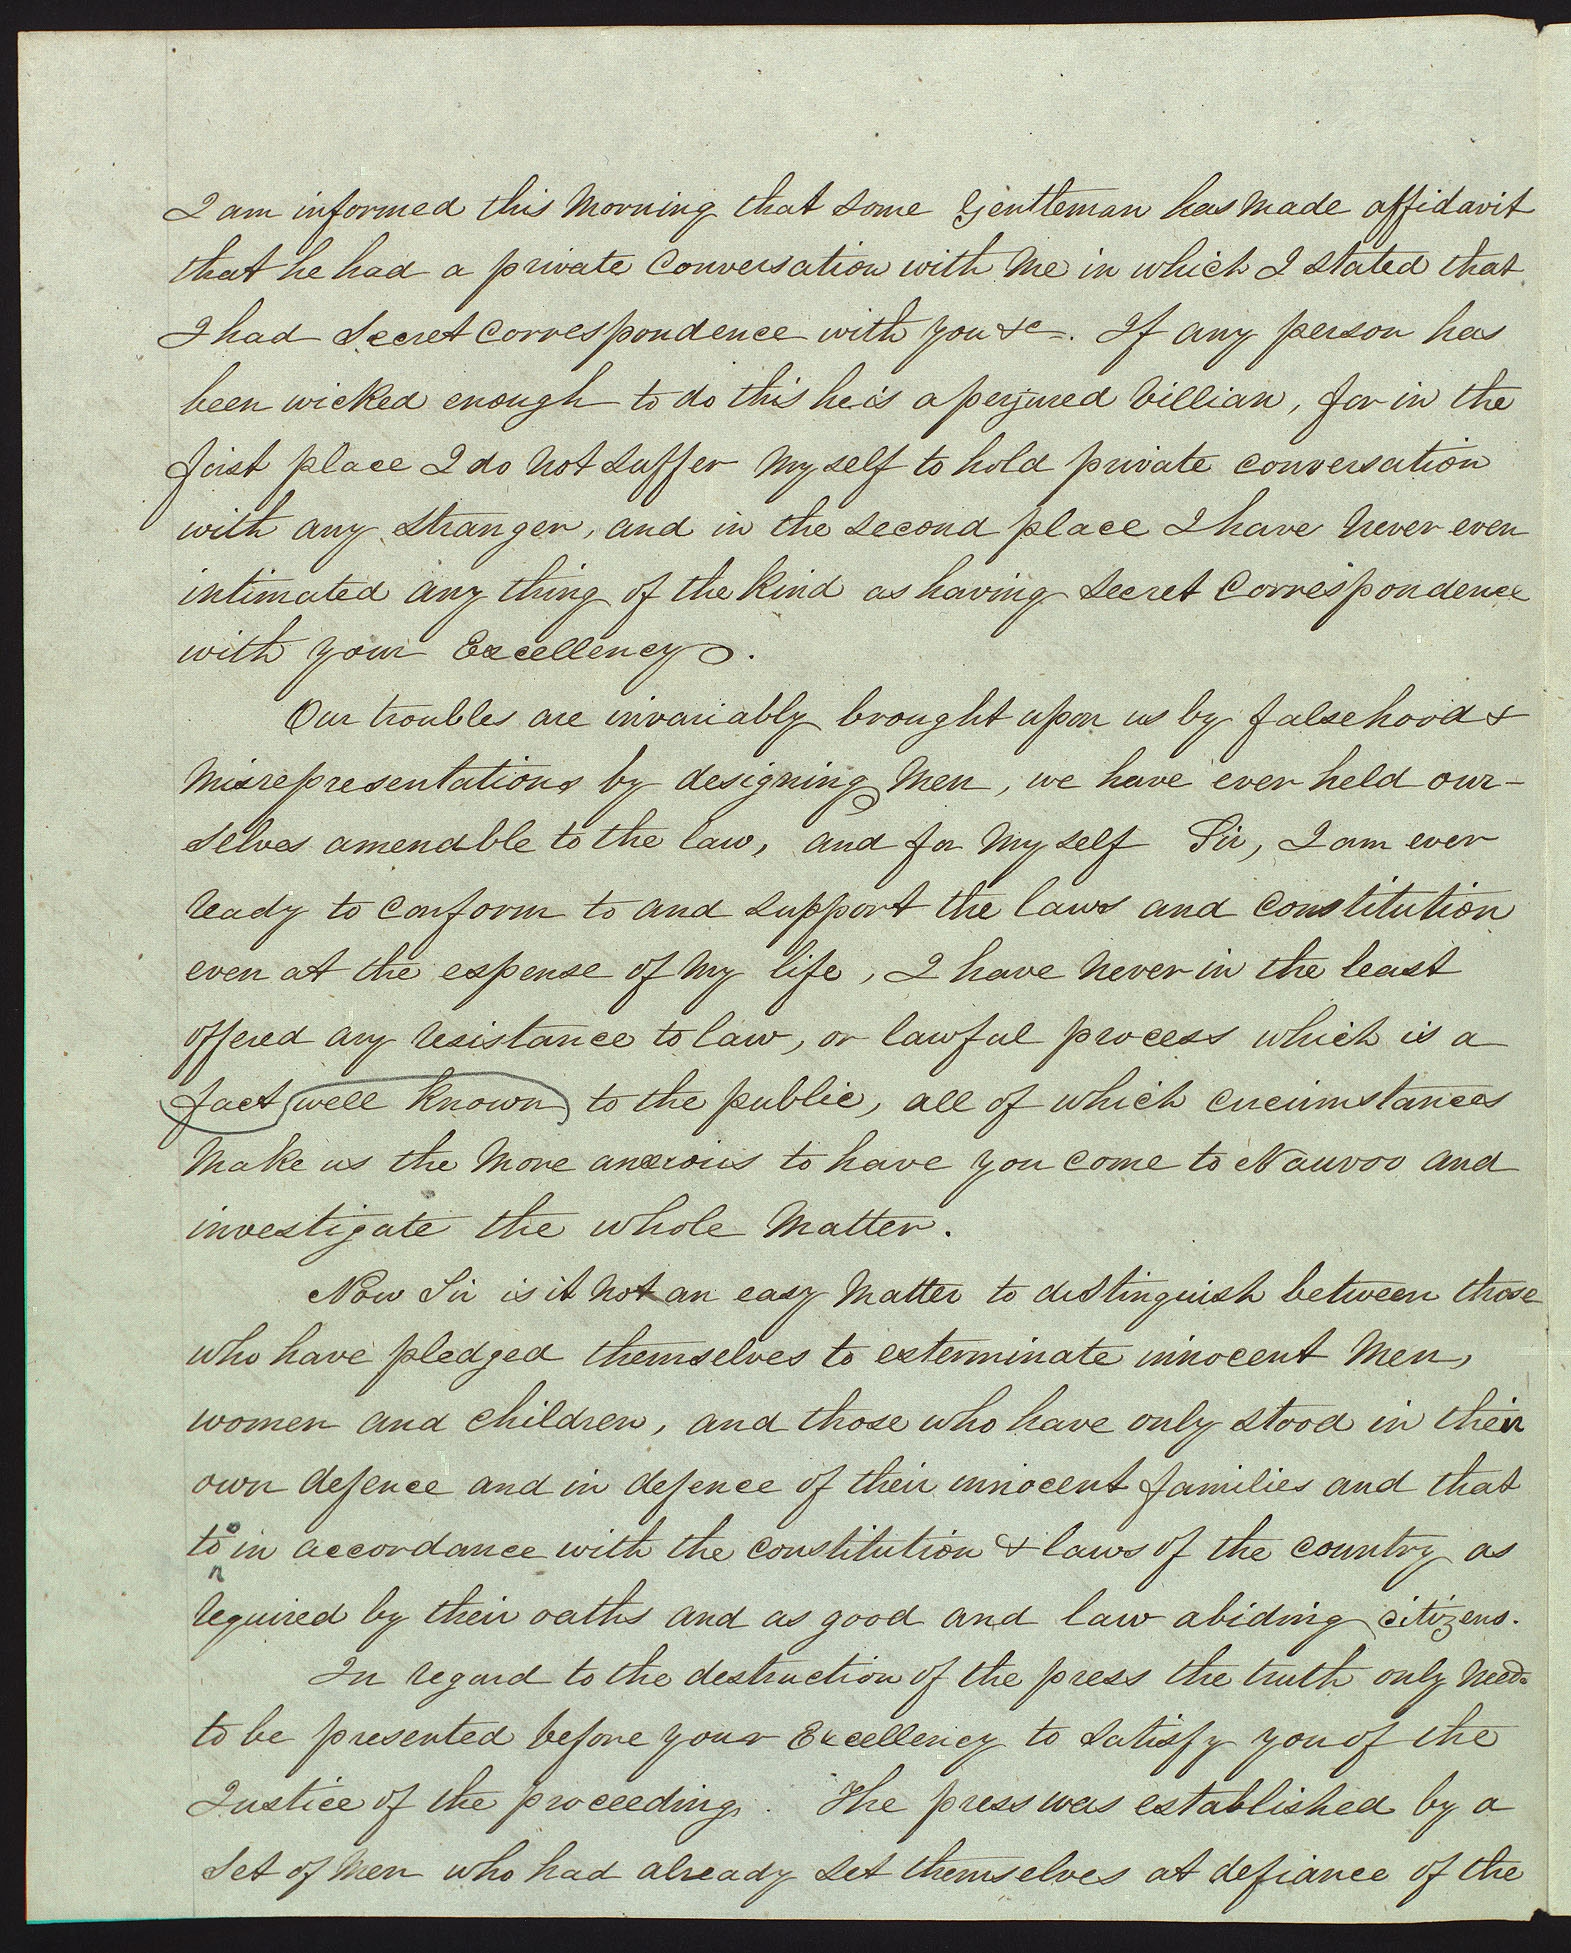 I am informed this Morning that some Gentleman has Made affidavit
that he had a private Conversation with Me in which I stated that
I had Secret Correspondence with you &c. If any person has
been wicked enough to do this he is a perjured Villian, for in the
first place I do Not suffer Myself to hold private conversation
with any stranger, and in the second place I have Never even
intimated any thing of the Kind as having Secret Correspondence
with your Excellency.
Our troubles are invariably brought upon us by falsehood &
Misrepresentations by designing Men, we have ever held our-
selves amenable to the law, and for Myself Sir, I am ever
ready to conform to and support the laws and constitution
even at the expense of My life, I have Never in the least
offered any resistance to law, or lawful process which is a
fact well Known to the public, all of which circumstances
Make us the More anxious to have you come to Nauvoo and
investigate the whole Matter.
Now Sir is it Not an easy Matter to distinguish between those
who have pledged themselves to exterminate innocent Men,
women and children, and those who have only stood in their
own defence and in defence of their innocent families and that
too in accordance with the constitution & laws of the country as
required by their oaths and as good and law abiding citizens.
In regard to the destruction of the press the truth only Needs
to be presented before your Excellency to satisfy you of the
Justice of the proceeding. The press was established by a
set of Men who had already set themselves at defiance of the